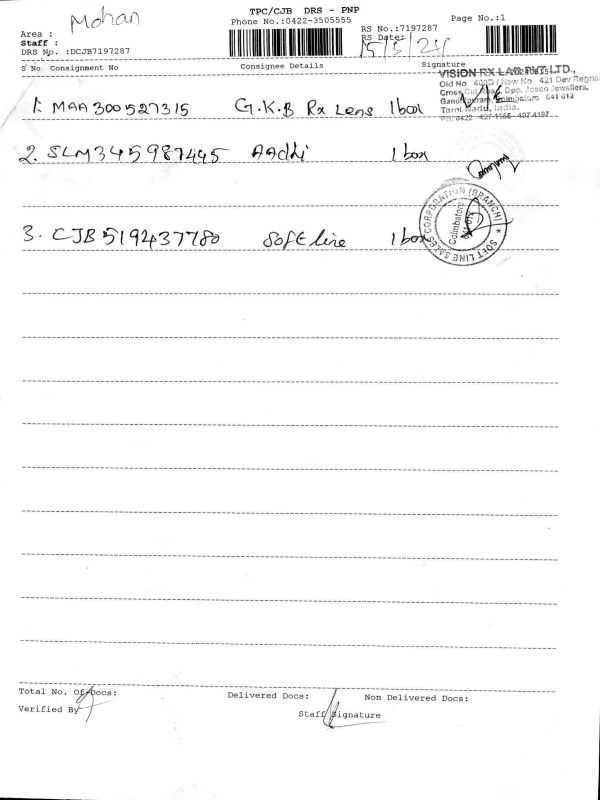 Mohan
TPC/CJB DRS - PNP
Phone No.:0422-3505555
Page No.:1
Area :
Staff :
DRS No. :DCJB7197287
RS No.:7197287
RS Date:
15/5/24
S No Consignment No Consignee Details Signature
1. MAA300527315 G.K.B Rx Lens 1 box
VISION RX LAB PVT. LTD.,
Old No 409D / New No 421 Dev Regnal
Cross Cut Road, Opp. Josco Jewellers,
Gandhipuram, Coimbatore 641 012
Tamil Nadu, India.
PH:0422 - 427 1166 497 4197
2. SLM345987445 AAddi 1 box
3. CJB519437780 Soft line 1 box
SOFT LINE SALES CORPORATION (BRANCH)
Coimbatore
641 012
Total No. Of Docs: Delivered Docs: Non Delivered Docs:
Verified By
Staff Signature